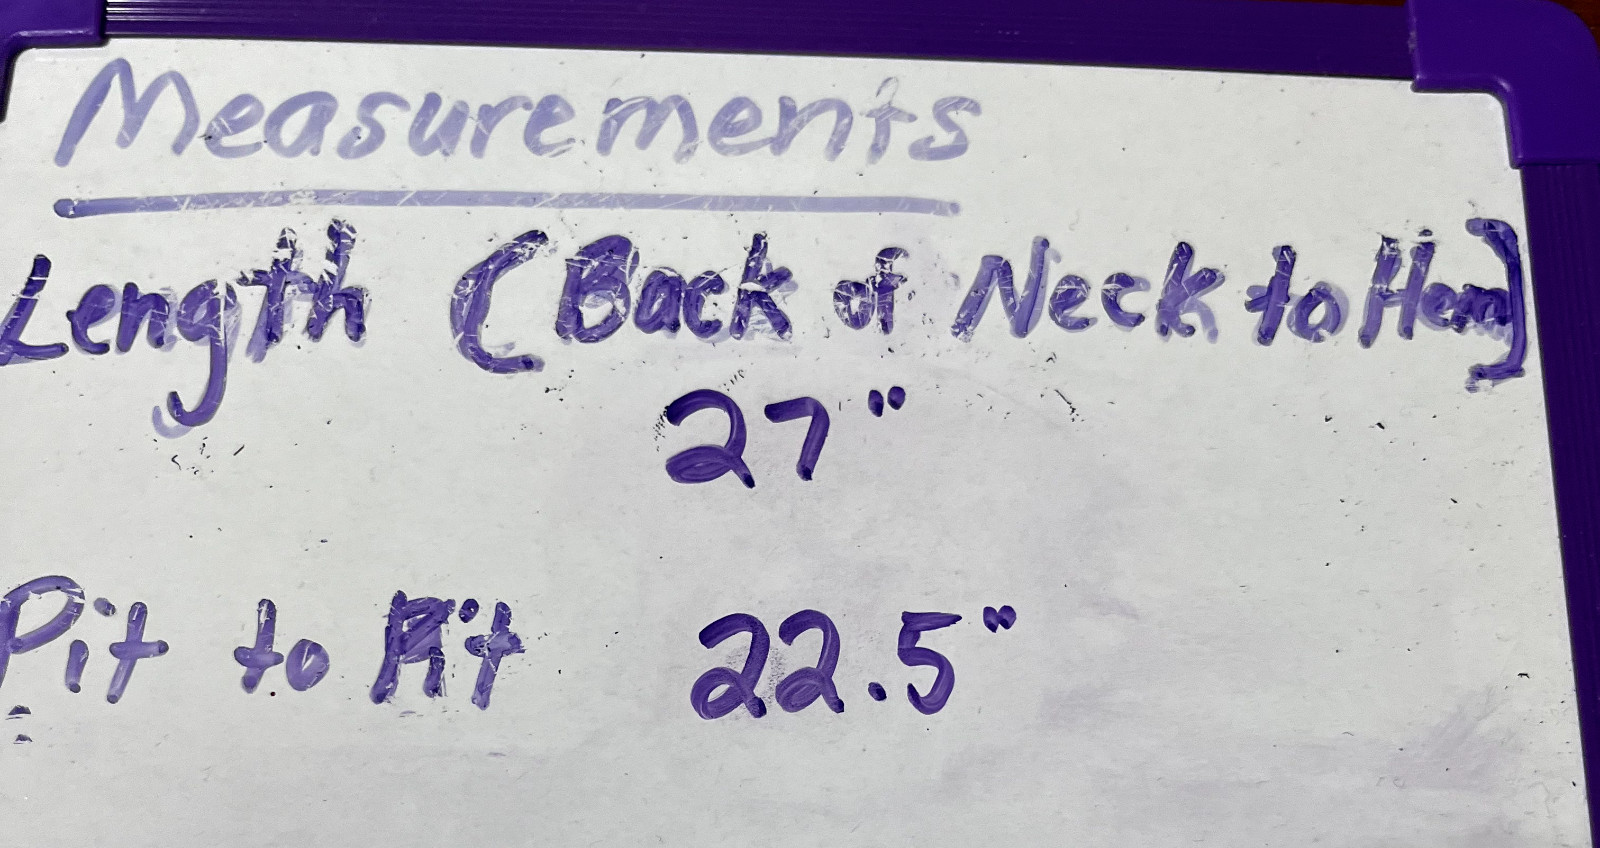 Measurements
Length (Back of Neck to Hem)
27"
Pit to Pit 22.5"